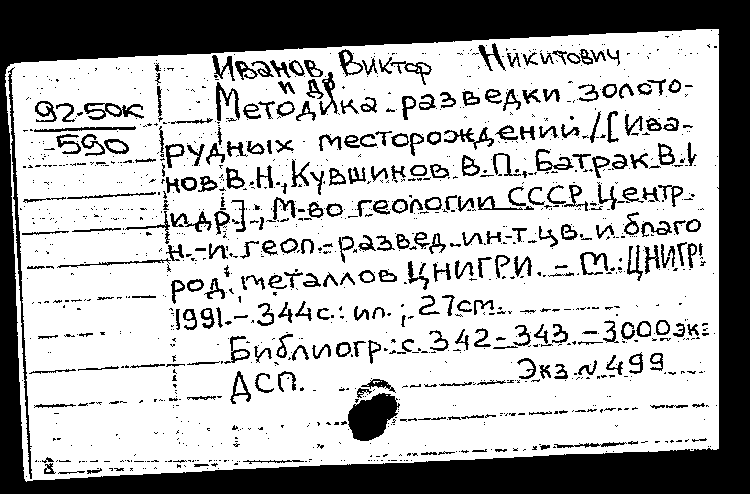 Иванов, Виктор Никитович
и др.
92-50к
590
Методика разведки золото-
рудных месторождений / [Ива-
нов В.Н., Кувшинов В.П., Батрак В.И
и др.]; М-во геологии СССР, Центр.
н.-и. геол.-развед. ин-т цв. и благо
род. металлов ЦНИГРИ. - М.: ЦНИГРИ
1991. - 344 с.: ил.; 27 см.
Библиогр.: с. 342-343 - 3000 экз
ДСП. Экз № 499